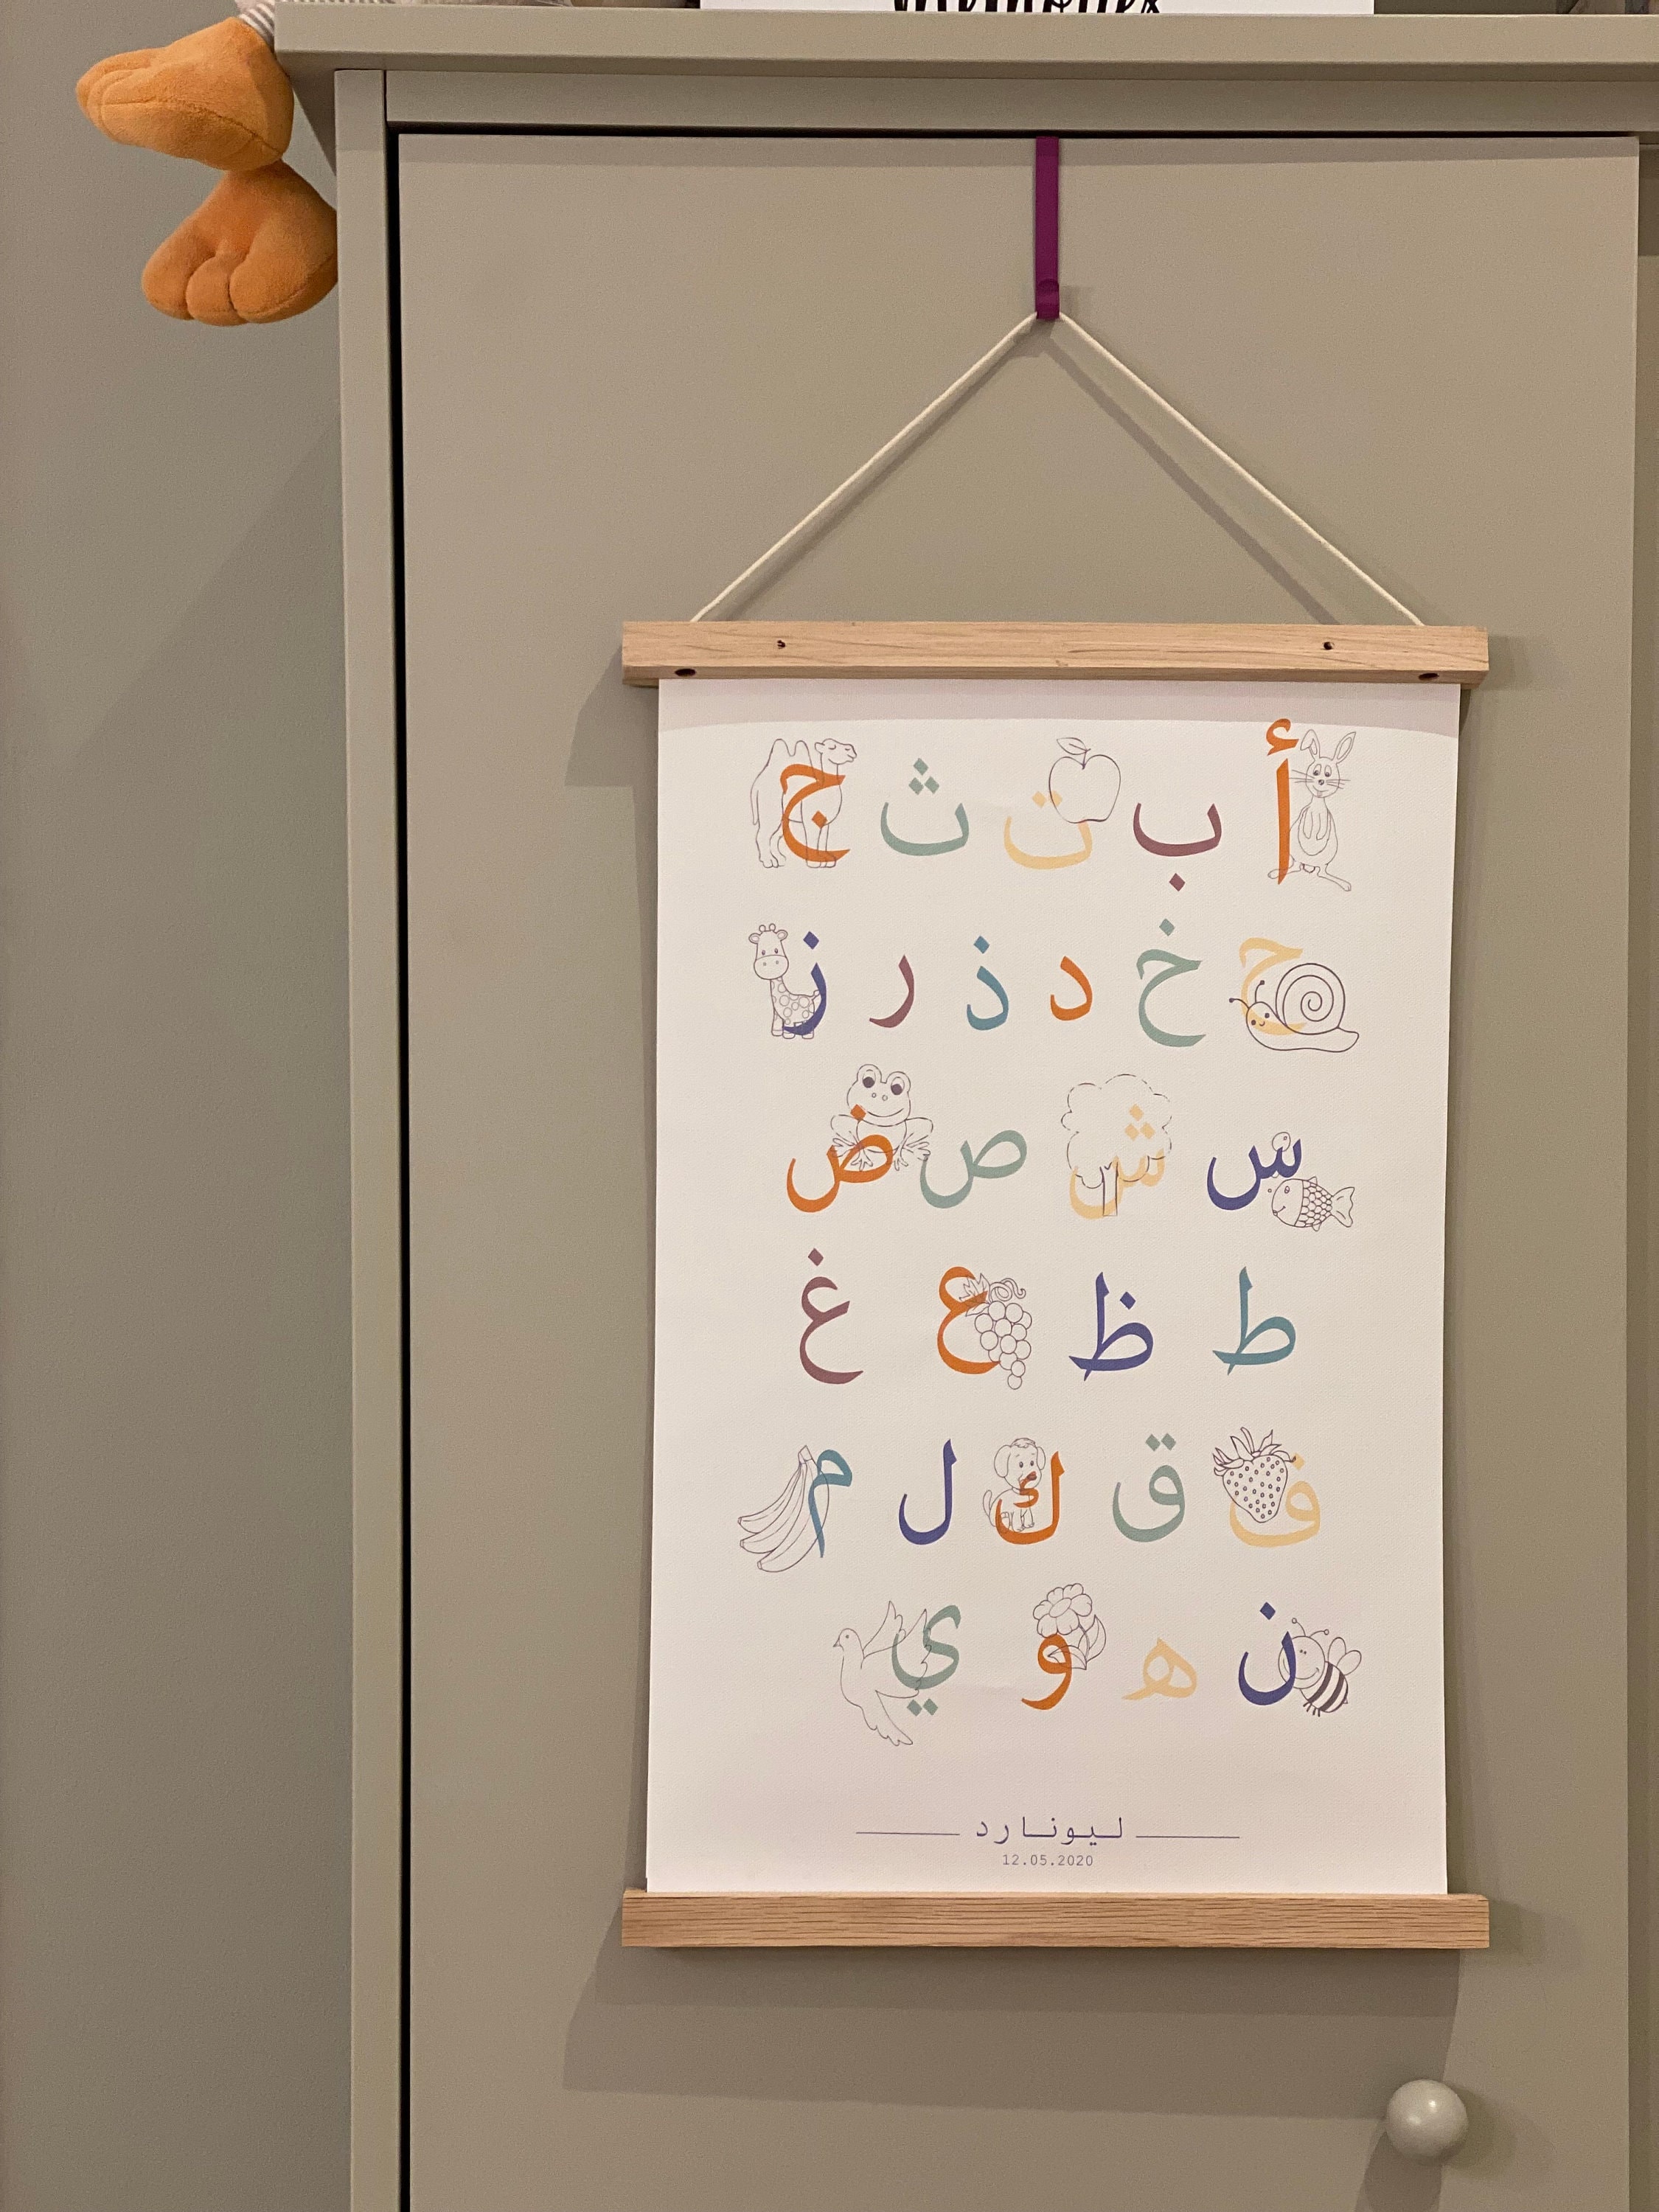 memories
أ ب ت ث ج
ح خ د ذ ر ز
س ش ص ض
ط ظ ع غ
ف ق ك ل م
ن ه و ي
ليونارد
12.05.2020